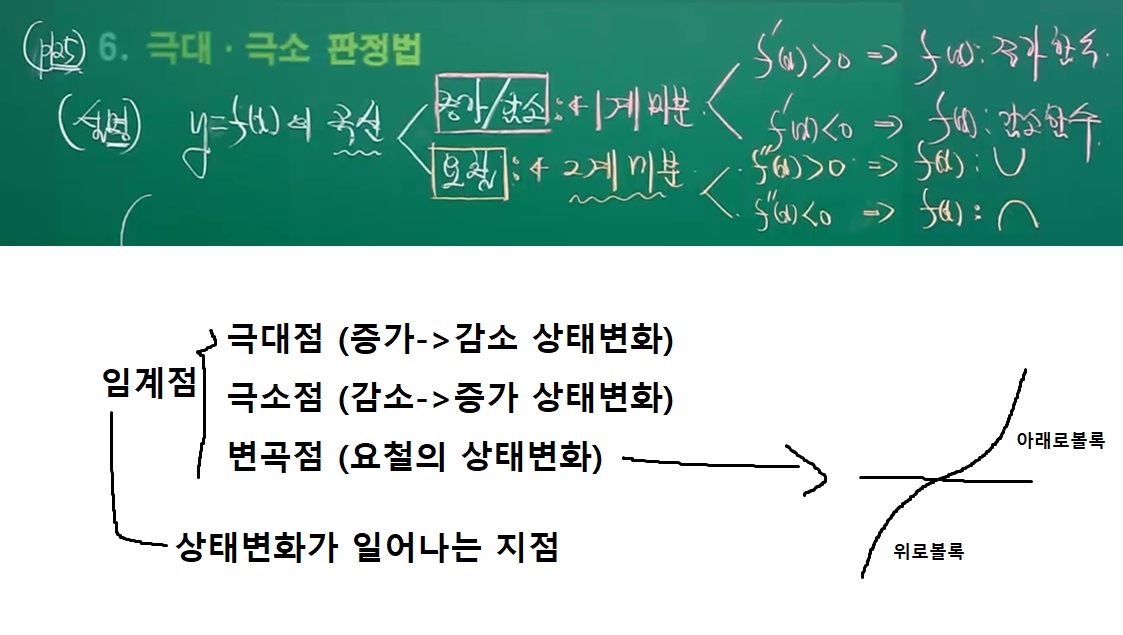 (p125) 6. 극대·극소 판정법
(설명) y=f(x)의 곡선
증가/감소 : ← 1계 미분
f'(x)>0 => f(x): 증가함수.
f'(x)<0 => f(x): 감소함수
요철 : ← 2계 미분
f''(x)>0 => f(x): ∪
f''(x)<0 => f(x): ∩
임계점
극대점 (증가->감소 상태변화)
극소점 (감소->증가 상태변화)
변곡점 (요철의 상태변화)
아래로볼록
위로볼록
상태변화가 일어나는 지점